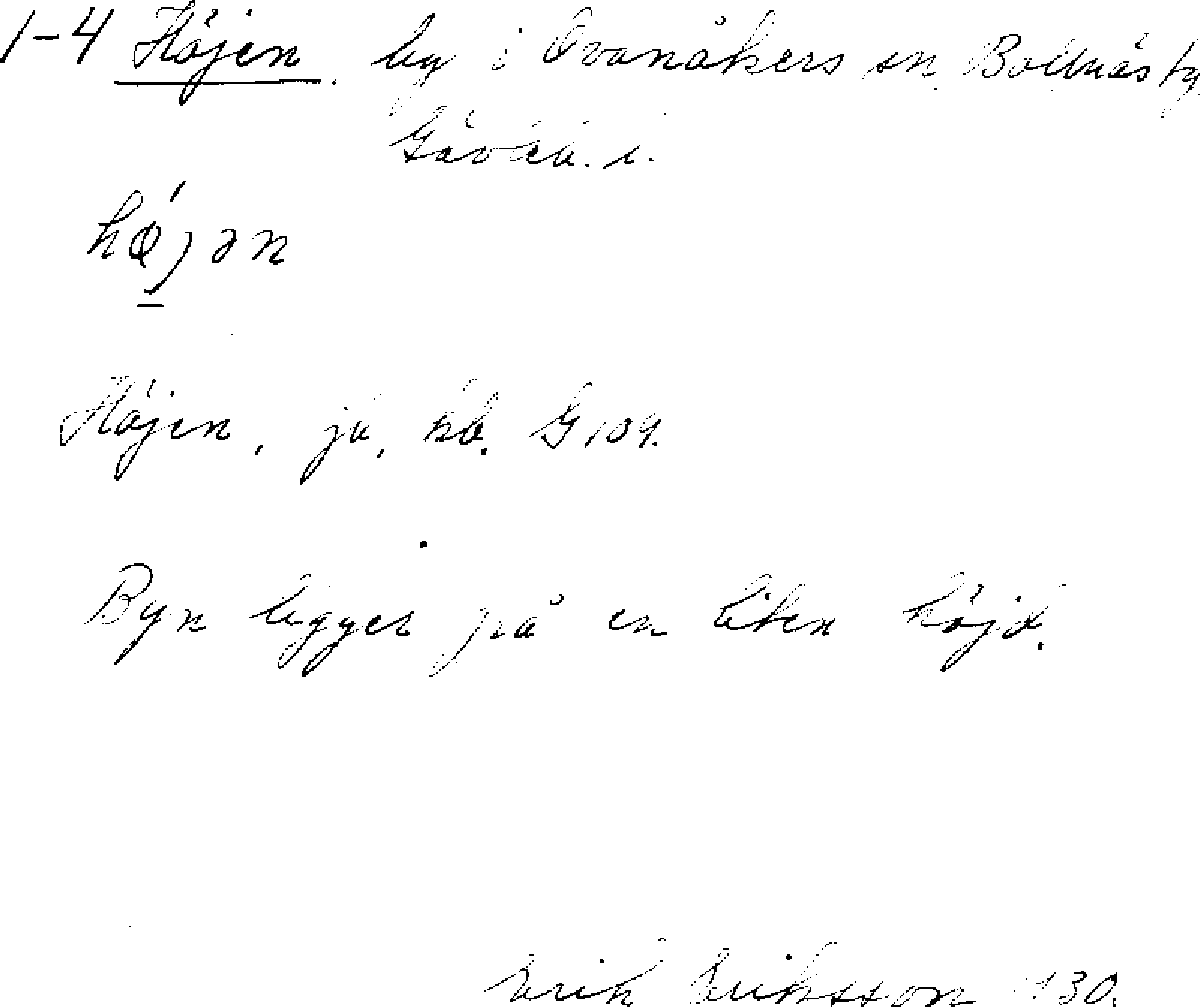 1-4 Höjen. by i Ovanåkers sn. Bollnäs tg.
Gävleb. l.
hǿjən
Höjen, jb, kb. G 109.
Byn ligger på en liten höjd.
Erik Eriksson 1930.